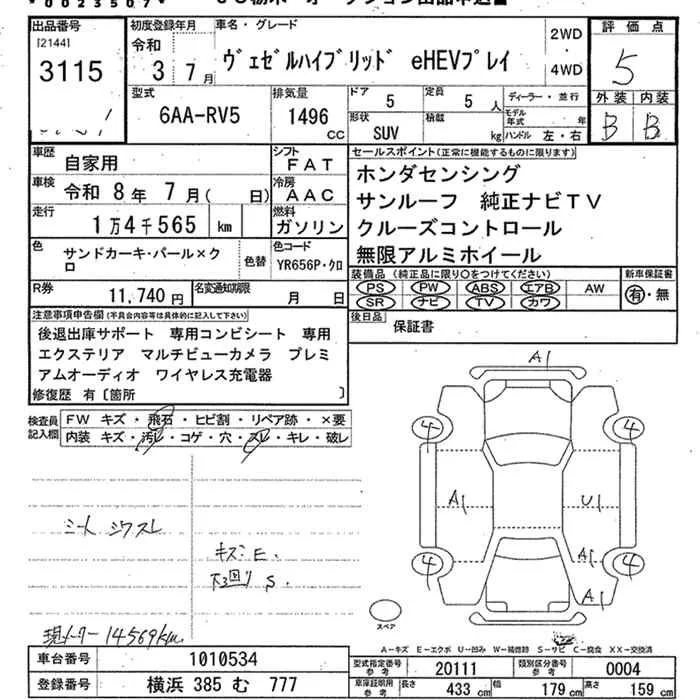 *0023507*
出品番号
[2144]
3115
初度登録年月
令和
3 7月
車名・グレード
ヴェゼルハイブリッド eHEVプレイ
2WD
・
4WD
評価点
5
外装 内装
B B
型式
6AA-RV5
排気量
1496
CC
ドア
5
定員
5 人
形状
SUV
積載
kg
ディーラー・並行
モデル年式 年
ハンドル 左・右
車歴
自家用
シフト
FAT
車検
令和 8年 7月( 日)
冷房
AAC
走行
1万4千565 km
燃料
ガソリン
色
サンドカーキ・パール×クロ
色替
色コード
YR656P・クロ
R券
11,740円
名変通知期限
月 日
セールスポイント(正常に機能するものに限ります)
ホンダセンシング
サンルーフ 純正ナビTV
クルーズコントロール
無限アルミホイール
装備品(純正品に限り○をつけてください)
新車保証書
PS PW ABS エアB AW
SR ナビ TV カワ
有・無
後日品
保証書
注意事項申告欄(不具合内容等は具体的に記入して下さい)
後退出庫サポート 専用コンビシート 専用
エクステリア マルチビューカメラ プレミ
アムオーディオ ワイヤレス充電器
修復歴 有〔箇所 〕
検査員
記入欄
FW キズ・飛石・ヒビ割・リペア跡・×要
内装 キズ・汚レ・コゲ・穴・スレ・キレ・破レ
シート シワスレ
キズ E.
下回り S.
現メーター 14569km
A1
4 4
A1 U1
A1
4 4
A1
スペア
A-キズ E-エクボ U-凹み W-補修跡 S-サビ C-腐食 XX-交換済
車台番号
1010534
登録番号
横浜 385 む 777
型式指定番号
参考
20111
類別区分番号
参考
0004
車庫証明用
参考
長さ 433 cm
幅 179 cm
高さ 159 cm